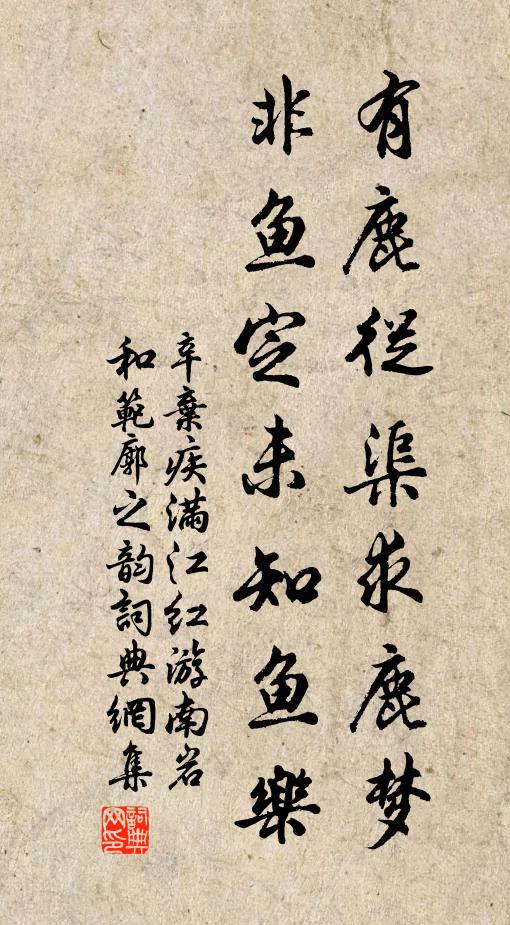 有鹿從渠求鹿梦
非鱼定未知鱼樂
辛棄疾满江红游南岩
和範廓之韵詞典網集
詞典网印